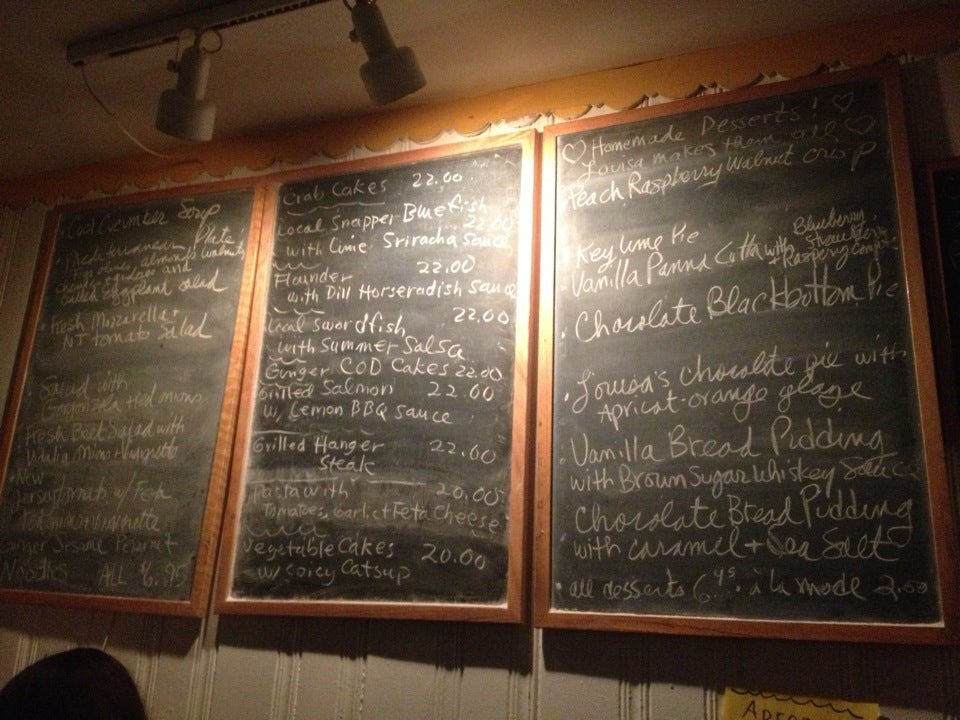 Cucumber Soup
Mediterranean Plate
figs olives almonds walnuts
and
Grilled Eggplant Salad
Fresh Mozzarella +
NJ tomato Salad
Salad with
Gorgonzola + red onions
Fresh Beet Salad with
Vidalia onions + vinaigrette
• New
Jersey tomato w/ Feta
Ginger Sesame Peanut
Noodles ALL 6.95
Crab Cakes 22.00
Local Snapper Bluefish
22.00
with Lime Sriracha Sauce
Flounder 22.00
with Dill Horseradish Sauce
Local Swordfish 22.00
with Summer Salsa
Ginger COD Cakes 22.00
Grilled Salmon 22.00
w/ Lemon BBQ Sauce
Grilled Hanger 22.00
Steak
Pasta with 20.00
Tomatoes, Garlic + Feta Cheese
Vegetable Cakes 20.00
w/ Spicy Catsup
♡ Homemade Desserts! ♡
Louisa makes them all ♡
Peach Raspberry Walnut crisp
• Key lime Pie
• Vanilla Panna Cotta with Blueberry
+ Raspberry
• Chocolate Blackbottom Pie
• Louisa's chocolate pie with
Apricot-orange glaze
• Vanilla Bread Pudding
with Brown Sugar Whiskey Sauce
• Chocolate Bread Pudding
with caramel + Sea Salt
• all desserts 6.95 • à la mode 2.00